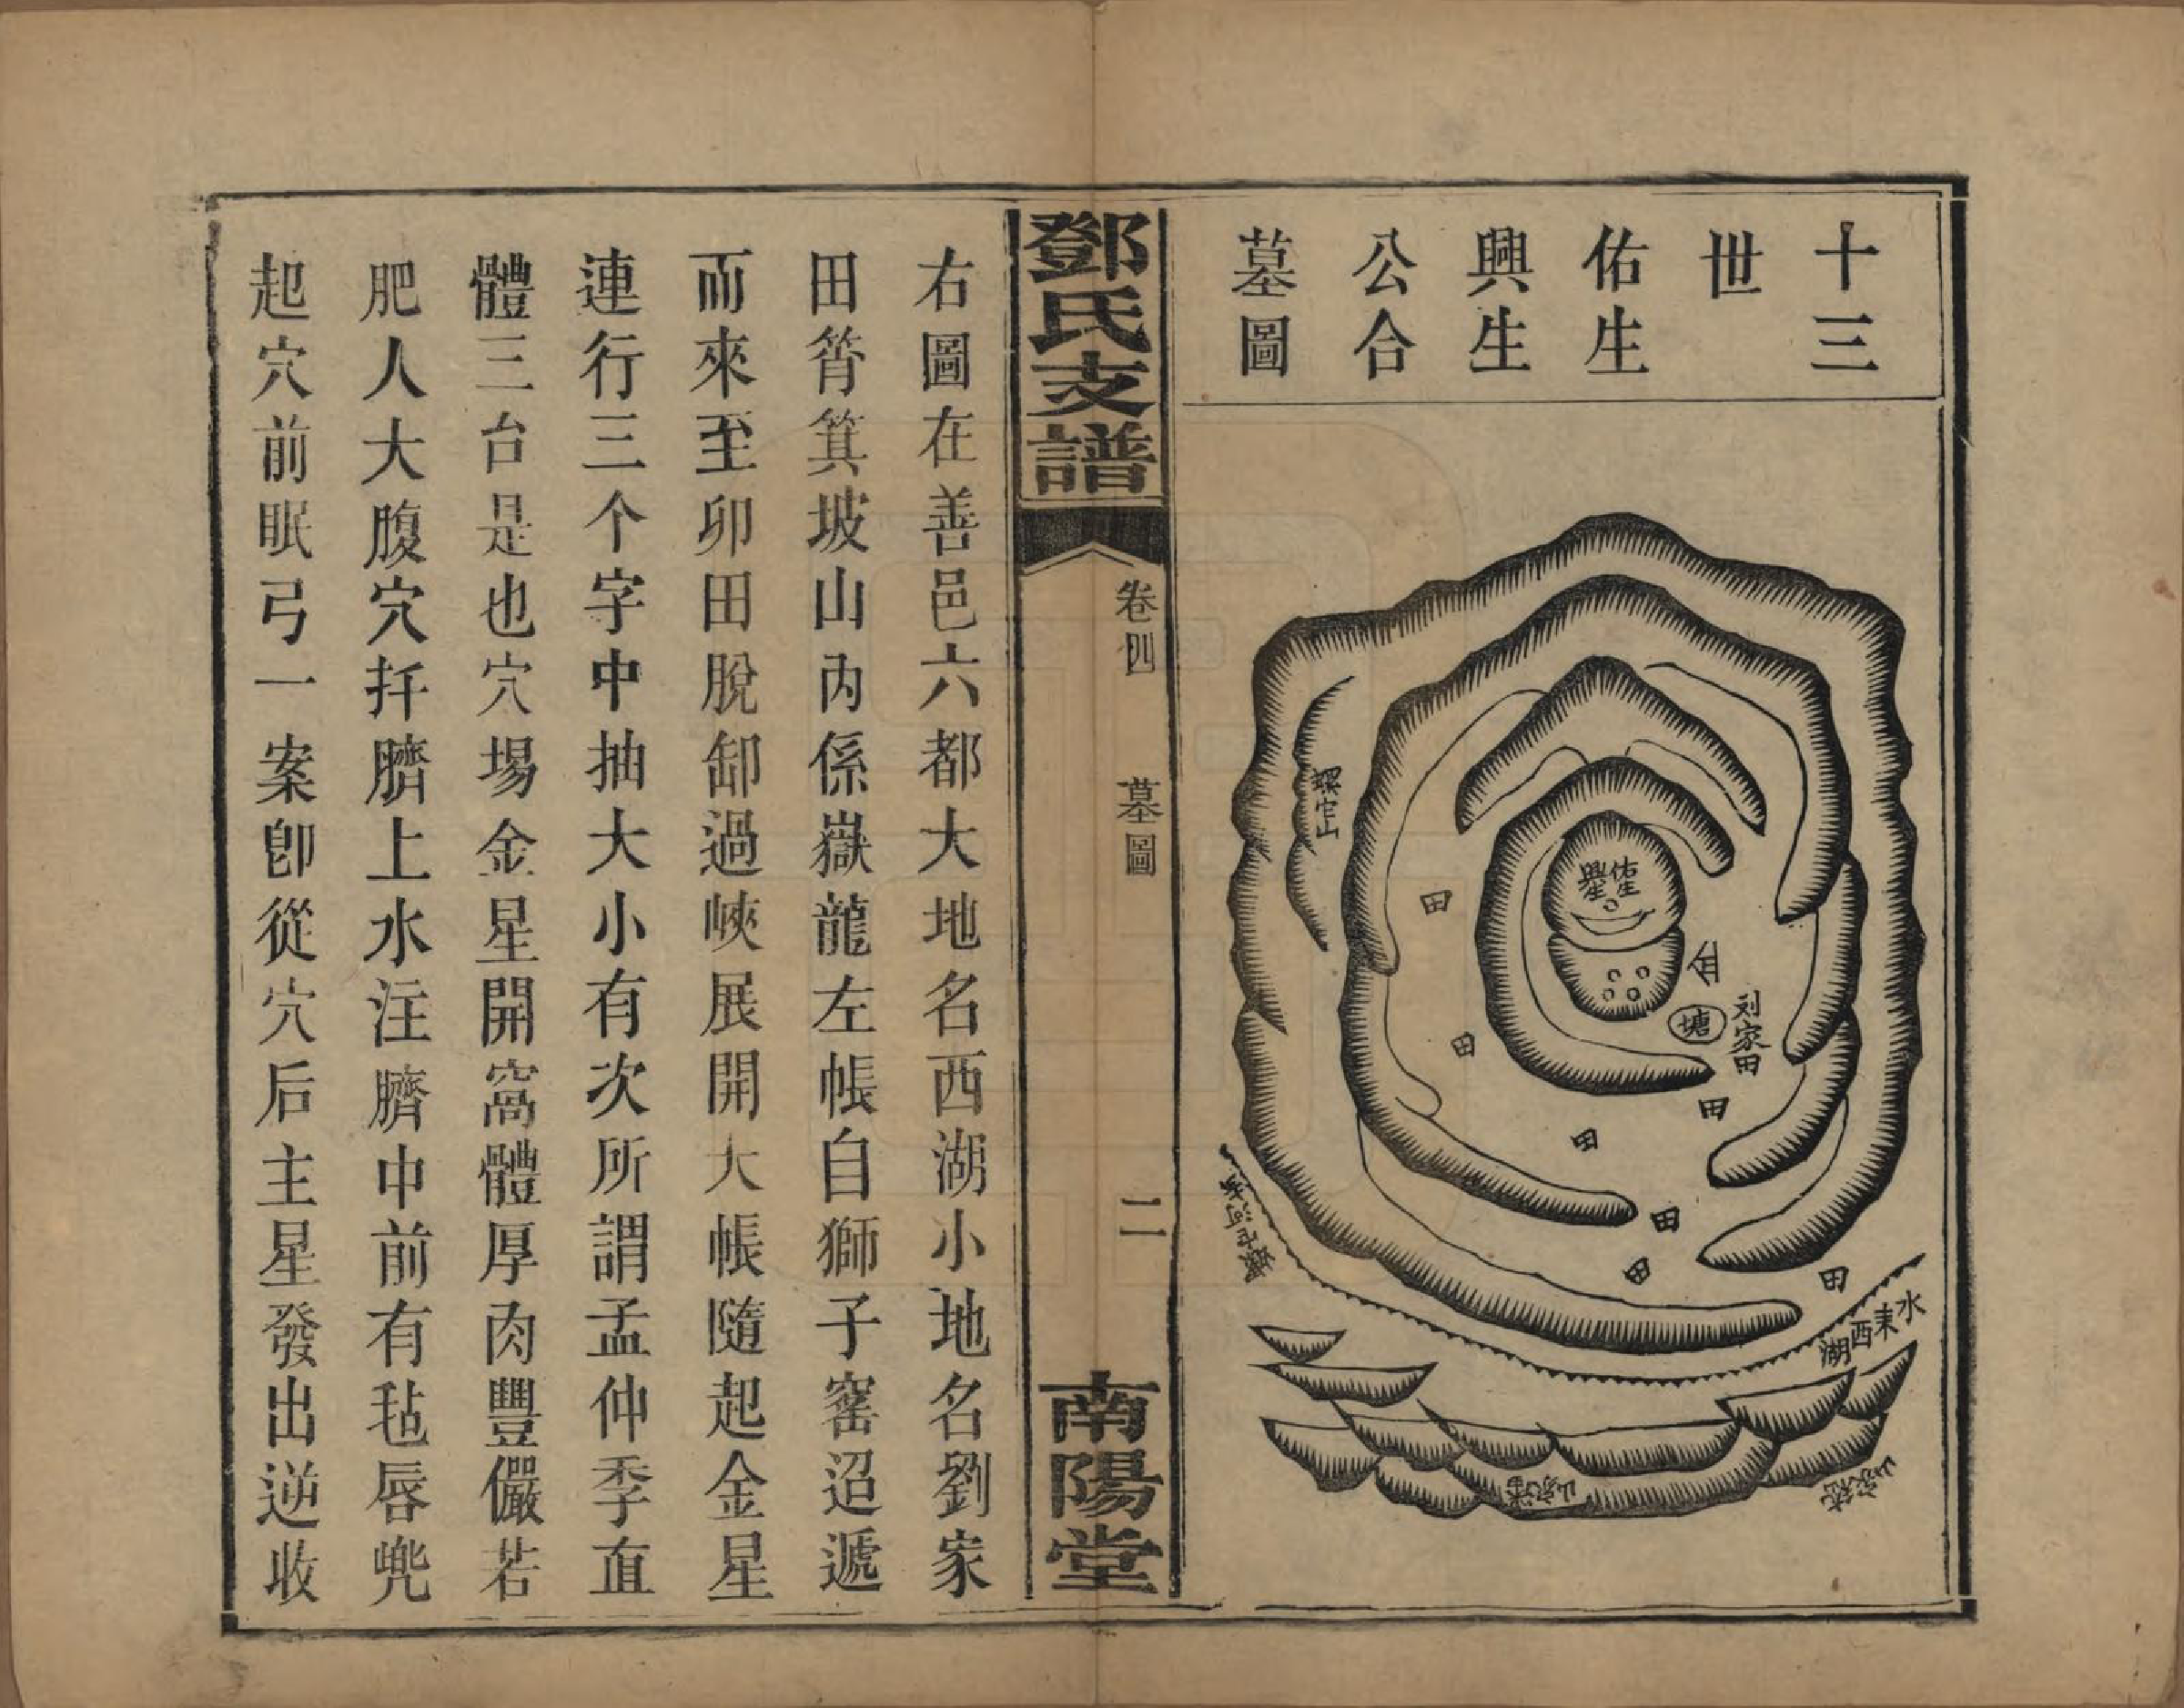 十三
世
佑生
興生
公合
墓圖
佑生
興生
塘
刘家田
田
田
田
田
田
田
田
水東西湖
潘家山
鄧氏支譜
卷四
墓圖
二
南陽堂
右圖在善邑六都大地名西湖小地名劉家
田筲箕坡山內係嶽龍左帳自獅子窰迢遞
而來至卯田脫卸過峽展開大帳隨起金星
連行三个字中抽大小有次所謂孟仲季直
體三台是也穴場金星開窩體厚肉豐儼若
肥人大腹穴扦臍上水注臍中前有毡唇兜
起穴前眠弓一案卽從穴后主星發出逆收